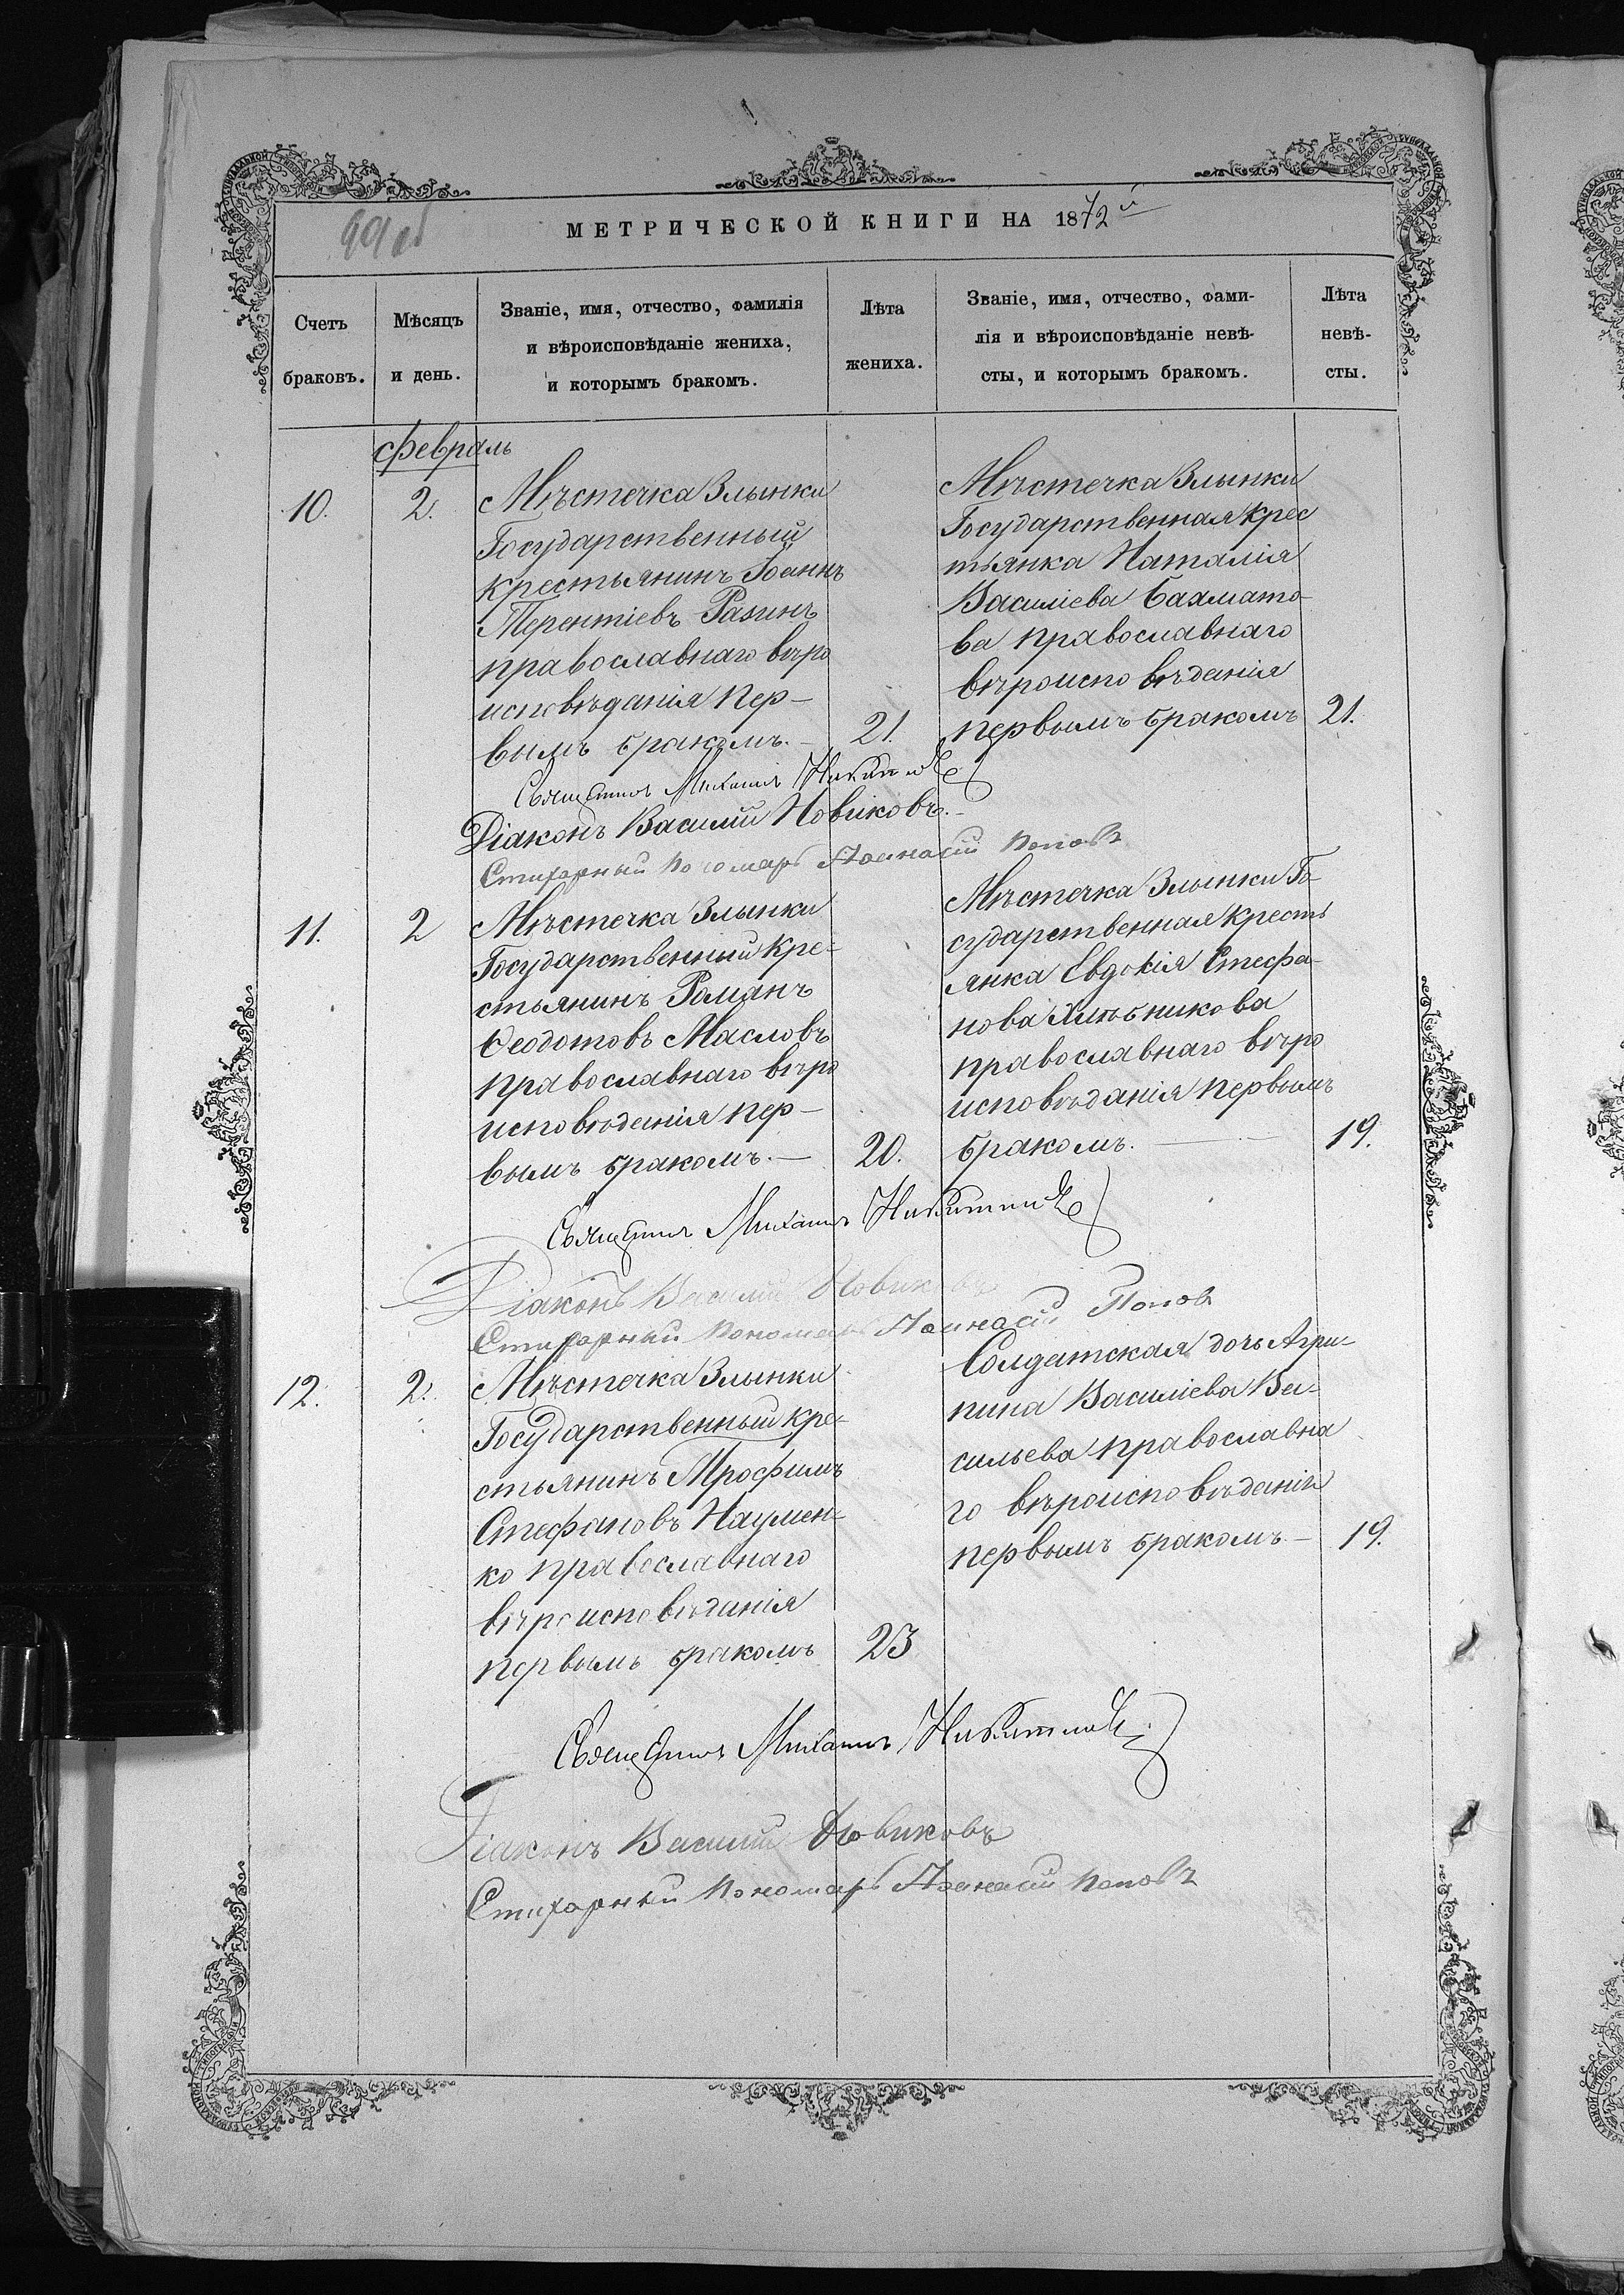 МЕТРИЧЕСКОЙ КНИГИ НА 1872й
Счетъ
браковъ.
Мѣсяцъ
и день.
Званіе, имя, отчество, фамилія
и вѣроисповѣданіе жениха,
и которымъ бракомъ.
Лѣта
жениха.
Званіе, имя, отчество, фами-
лія и вѣроисповѣданіе невѣ-
сты, и которымъ бракомъ.
Лѣта
невѣ-
сты.
февраль
10.
2.
Мѣстечка Злынки
Государственный
крестьянинъ Іоаннъ
Терентіевъ Разинъ
православнаго вѣро
исповѣданія пер-
вымъ бракомъ.
21.
Мѣстечка Злынки
Государственная крес
тьянка Наталія
Василіева Бахмато-
ва православнаго
вѣроисповѣданія
первымъ бракомъ
21.
Священникъ Михаилъ
Діаконъ Василій Новиковъ.
Стихарный Пономарь Афанасій Поповъ
11.
2
Мѣстечка Злынки
Государственный кре-
стьянинъ Романъ
Ѳеодотовъ Масловъ
православнаго вѣро
исповѣданія пер-
вымъ бракомъ. —
20.
Мѣстечка Злынки Го-
сударственная кресть
янка Евдокія Стефа-
нова Хлѣбникова
православнаго вѣро
исповѣданія первымъ
бракомъ. —
19.
Священникъ Михаилъ
Діаконъ Василій Новиковъ
Стихарный Пономарь Афанасій Поповъ
12.
2.
Мѣстечка Злынки
Государственный кре-
стьянинъ Трофимъ
Стефановъ Наумен-
ко православнаго
вѣроисповѣданія
первымъ бракомъ
23
Солдатская дочь Агри-
пина Василіева Ва-
сильева православна
го вѣроисповѣданія
первымъ бракомъ —
19.
Священникъ Михаилъ
Діаконъ Василій Новиковъ
Стихарный Пономарь Афанасій Поповъ